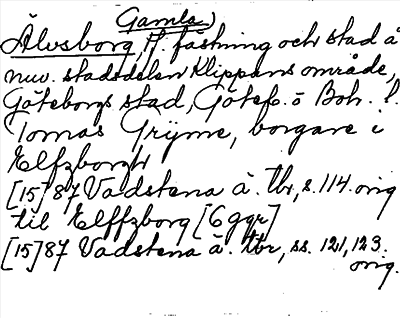 Gamla)
Älvsborg, f. fästning och stad å
nuv. stadsdelen Klippans område,
Göteborgs stad, Götebo. o Boh. l.
Tomas Tryme, borgare i
Elfzborgh
[15]87 Vadstena ä. tbr, s. 114. orig
til Elffzborg [6 ggr]
[15]87 Vadstena ä. tbr, ss. 121, 123.
orig.